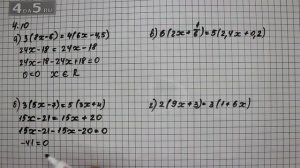 4.10
а) 3(8x-6)=4(6x-4,5)
24x-18 = 24x-18
24x-18-24x+18=0
0=0 x∈R
б) 3(5x-7)=5(3x+4)
15x-21=15x+20
15x-21-15x-20=0
-41=0
в) 6(2x+1/6)=5(2,4x+0,2)
г) 2(9x+3)=3(1+6x)